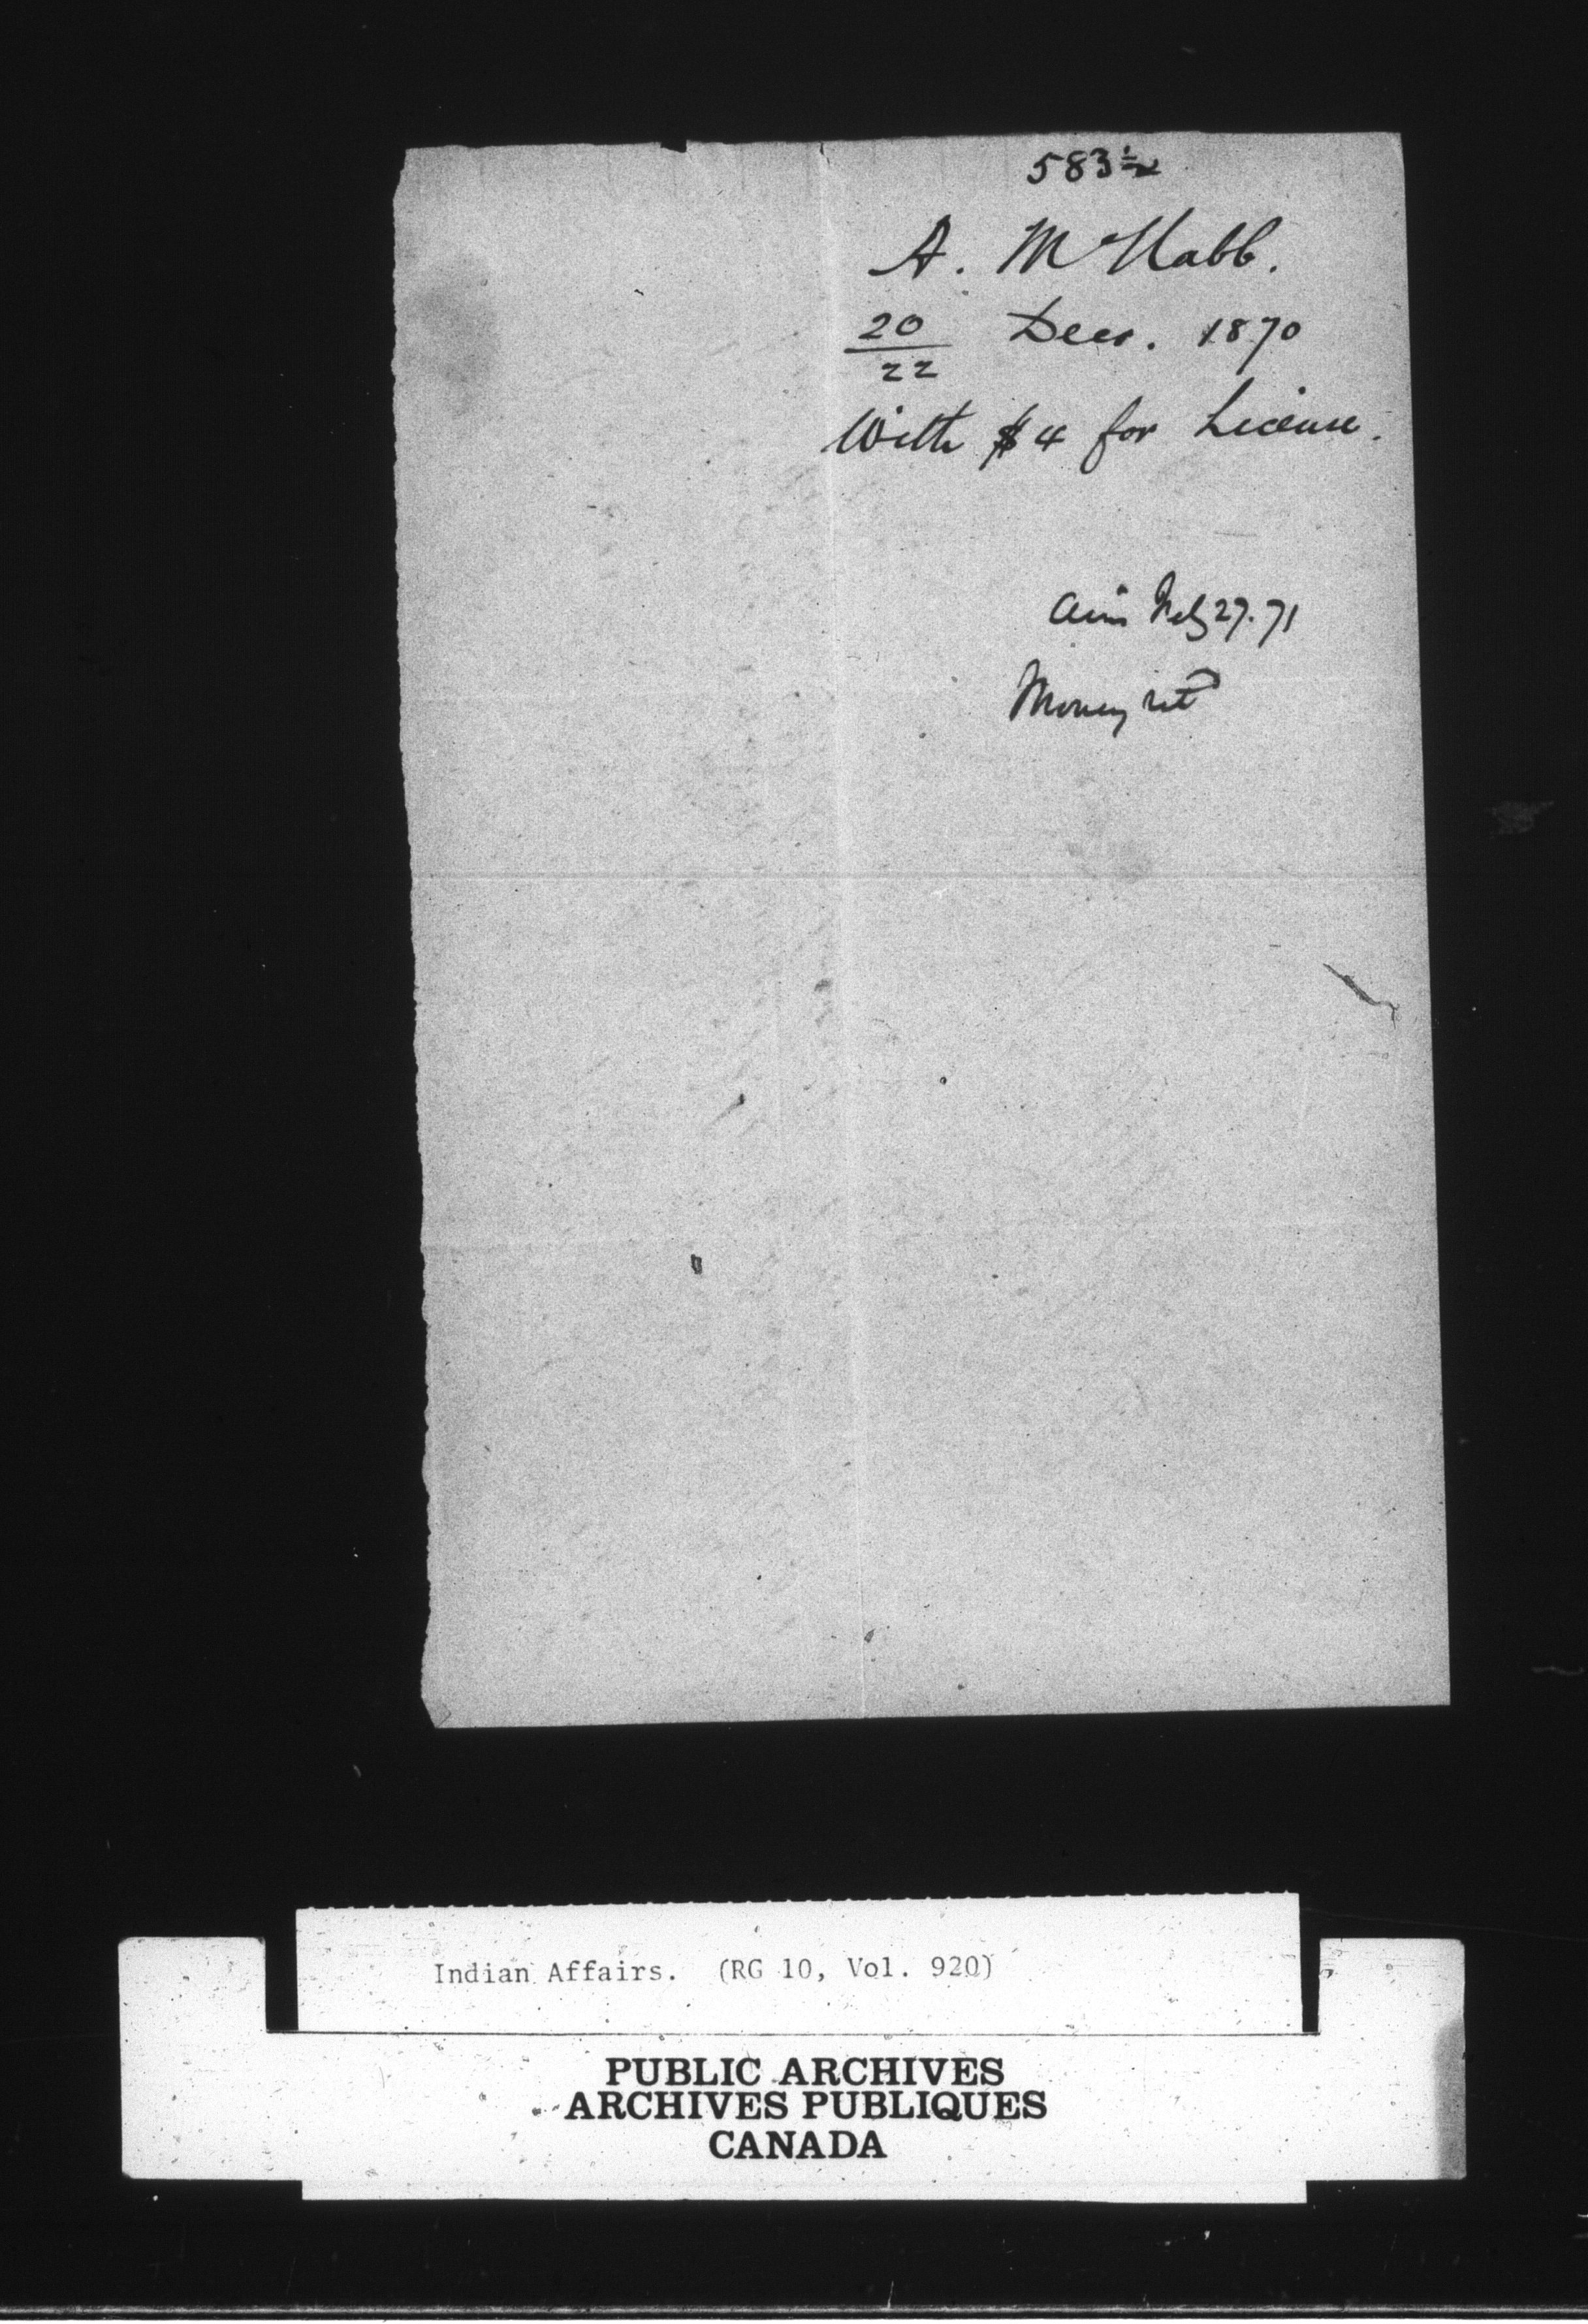 583½
A. McNabb.
20/22 Decr. 1870
With $4 for License.
Feby 27. 71
Money retd
Indian Affairs. (RG 10, Vol. 920)
PUBLIC ARCHIVES
ARCHIVES PUBLIQUES
CANADA